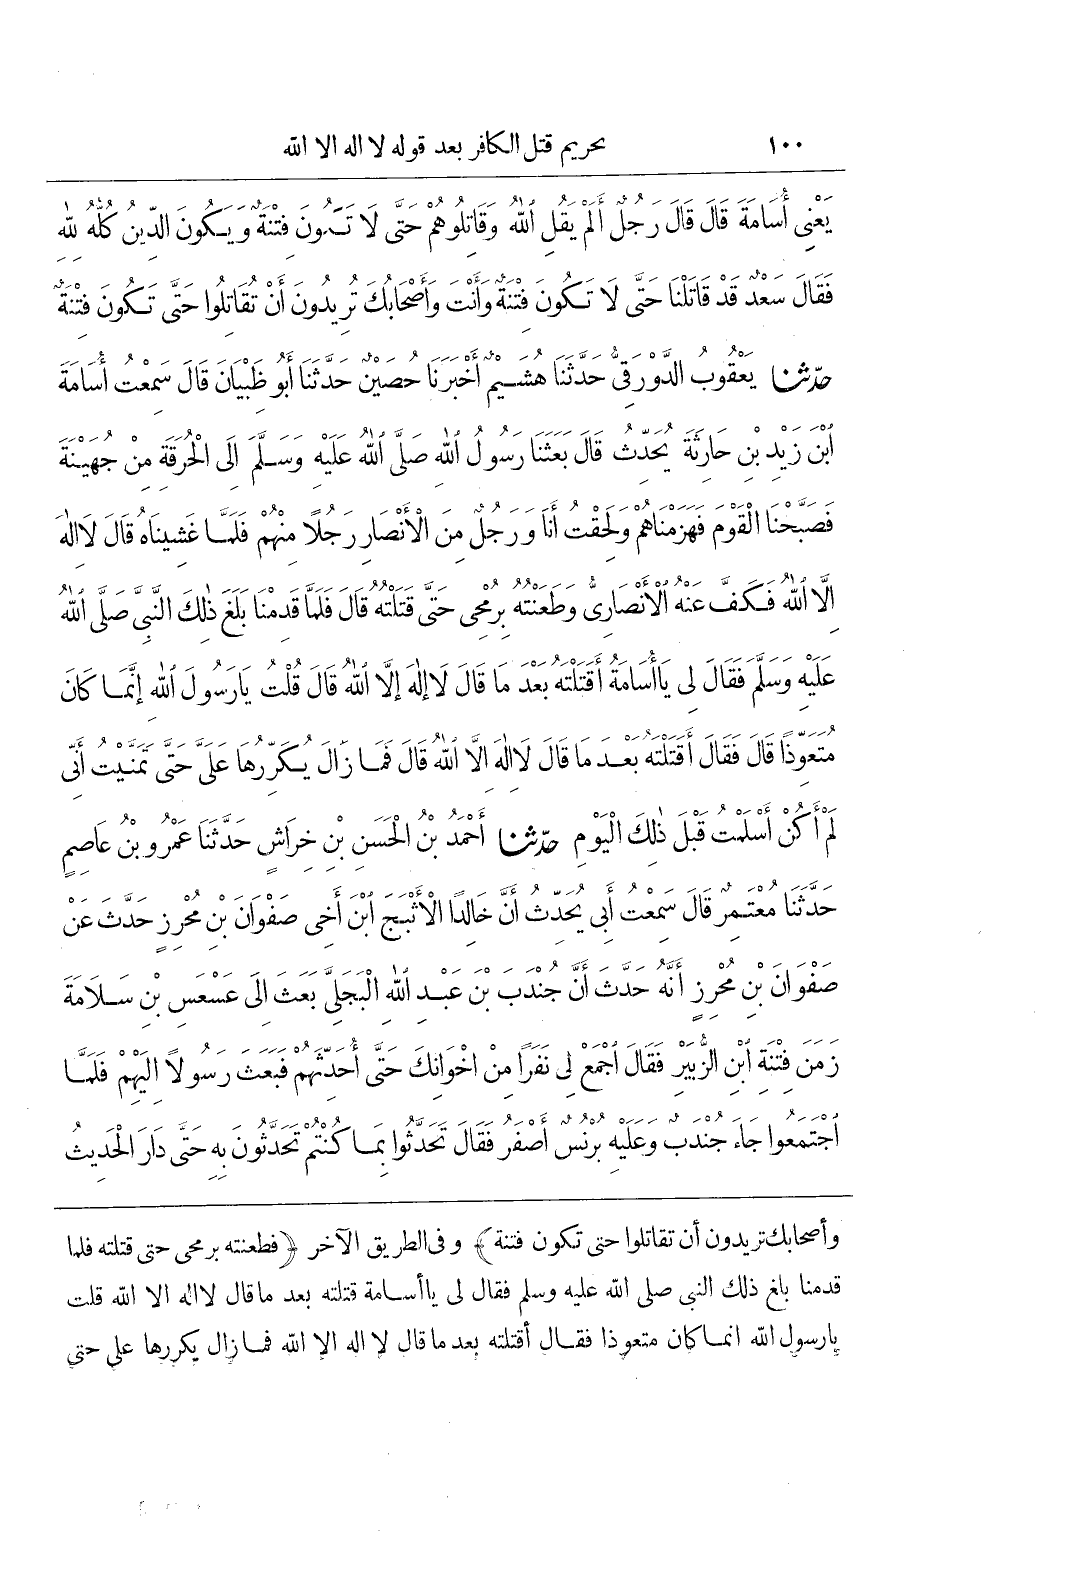 ١٠٠ تحريم قتل الكافر بعد قوله لا اله الا الله
يَعْنِي أُسَامَةَ قَالَ قَالَ رَجُلٌ أَلَمْ يَقُلِ ٱللهُ وَقَاتِلُوهُمْ حَتَّى لَا تَكُونَ فِتْنَةٌ وَيَكُونَ الدِّينُ كُلُّهُ لِلهِ
فَقَالَ سَعْدٌ قَدْ قَاتَلْنَا حَتَّى لَا تَكُونَ فِتْنَةٌ وَأَنْتَ وَأَصْحَابُكَ تُرِيدُونَ أَنْ تُقَاتِلُوا حَتَّى تَكُونَ فِتْنَةٌ
حدّثنا يَعْقُوبُ الدَّوْرَقِيُّ حَدَّثَنَا هُشَيْمٌ أَخْبَرَنَا حُصَيْنٌ حَدَّثَنَا أَبُو ظَبْيَانَ قَالَ سَمِعْتُ أُسَامَةَ
ٱبْنَ زَيْدِ بْنِ حَارِثَةَ يُحَدِّثُ قَالَ بَعَثَنَا رَسُولُ ٱللهِ صَلَّى ٱللهُ عَلَيْهِ وَسَلَّمَ إِلَى الْحُرَقَةِ مِنْ جُهَيْنَةَ
فَصَبَّحْنَا الْقَوْمَ فَهَزَمْنَاهُمْ وَلَحِقْتُ أَنَا وَرَجُلٌ مِنَ الْأَنْصَارِ رَجُلًا مِنْهُمْ فَلَمَّا غَشِينَاهُ قَالَ لَا الٰهَ
اِلَّا ٱللهُ فَكَفَّ عَنْهُ الْأَنْصَارِىُّ وَطَعَنْتُهُ بِرُمْحِى حَتَّى قَتَلْتُهُ قَالَ فَلَمَّا قَدِمْنَا بَلَغَ ذٰلِكَ النَّبِىَّ صَلَّى ٱللهُ
عَلَيْهِ وَسَلَّمَ فَقَالَ لِى يَاأُسَامَةُ أَقَتَلْتَهُ بَعْدَ مَا قَالَ لَا إِلٰهَ إِلَّا ٱللهُ قَالَ قُلْتُ يَارَسُولَ ٱللهِ إِنَّمَا كَانَ
مُتَعَوِّذًا قَالَ فَقَالَ أَقَتَلْتَهُ بَعْدَ مَا قَالَ لَا الٰهَ الَّا ٱللهُ قَالَ فَمَا زَالَ يُكَرِّرُهَا عَلَىَّ حَتَّى تَمَنَّيْتُ أَنِّى
لَمْ أَكُنْ أَسْلَمْتُ قَبْلَ ذٰلِكَ الْيَوْمِ حدّثنا أَحْمَدُ بْنُ الْحَسَنِ بْنِ خِرَاشٍ حَدَّثَنَا عَمْرُو بْنُ عَاصِمٍ
حَدَّثَنَا مُعْتَمِرٌ قَالَ سَمِعْتُ أَبِى يُحَدِّثُ أَنَّ خَالِدًا الْأَثْبَجَ ٱبْنَ أَخِى صَفْوَانَ بْنِ مُحْرِزٍ حَدَّثَ عَنْ
صَفْوَانَ بْنِ مُحْرِزٍ أَنَّهُ حَدَّثَ أَنَّ جُنْدَبَ بْنَ عَبْدِ ٱللهِ الْبَجَلِىَّ بَعَثَ الَى عَسْعَسِ بْنِ سَلَامَةَ
زَمَنَ فِتْنَةِ ٱبْنِ الزُّبَيْرِ فَقَالَ ٱجْمَعْ لِى نَفَرًا مِنْ اخْوَانِكَ حَتَّى أُحَدِّثَهُمْ فَبَعَثَ رَسُولًا الَيْهِمْ فَلَمَّا
ٱجْتَمَعُوا جَاءَ جُنْدَبٌ وَعَلَيْهِ بُرْنُسٌ أَصْفَرُ فَقَالَ تَحَدَّثُوا بِمَا كُنْتُمْ تَحَدَّثُونَ بِهِ حَتَّى دَارَ الْحَدِيثُ
وأصحابك تريدون أن تقاتلوا حتى تكون فتنة﴾ وفى الطريق الآخر ﴿فطعنته برمحى حتى قتلته فلما
قدمنا بلغ ذلك النبى صلى الله عليه وسلم فقال لى ياأسامة قتلته بعد ما قال لا اله الا الله قلت
يارسول الله انما كان متعوذا فقال أقتلته بعد ما قال لا اله الا الله فما زال يكررها على حتى